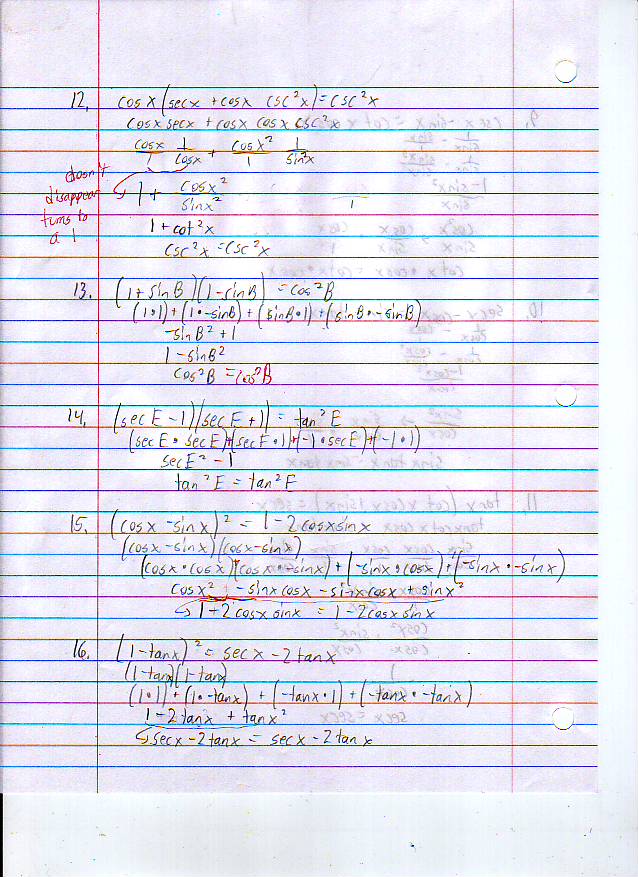 12. cos x (sec x + cos x csc²x) = csc²x
cos x sec x + cos x cos x csc²x
cos x/1 1/cos x + cos x²/1 1/sin²x
doesn't
disappear
turns to
a 1
1 + cos x²/sin x²
1
1 + cot²x
csc²x = csc²x
13. (1 + sin B)(1 - sin B) = cos²B
(1•1) + (1•-sinB) + (sinB•1) + (sinB•-sinB)
-sin B² + 1
1 - sin B²
cos²B = cos²B
14. (sec E - 1)(sec E + 1) = tan²E
(sec E • sec E)+(sec E • 1)+(-1 • sec E)+(-1 • 1)
sec E² - 1
tan²E = tan²E
15. (cos x - sin x)² = 1 - 2 cos x sin x
(cos x - sin x)(cos x - sin x)
(cos x • cos x)(cos x • -sin x) + (-sin x • cos x) + (-sin x • -sin x)
cos x² - sin x cos x - sin x cos x + sin x²
1 - 2 cos x sin x = 1 - 2 cos x sin x
16. (1 - tan x)² = sec x - 2 tan x
(1 - tan x)(1 - tan x)
(1•1) + (1•-tan x) + (-tan x • 1) + (-tan x • -tan x)
1 - 2 tan x + tan x²
sec x - 2 tan x = sec x - 2 tan x